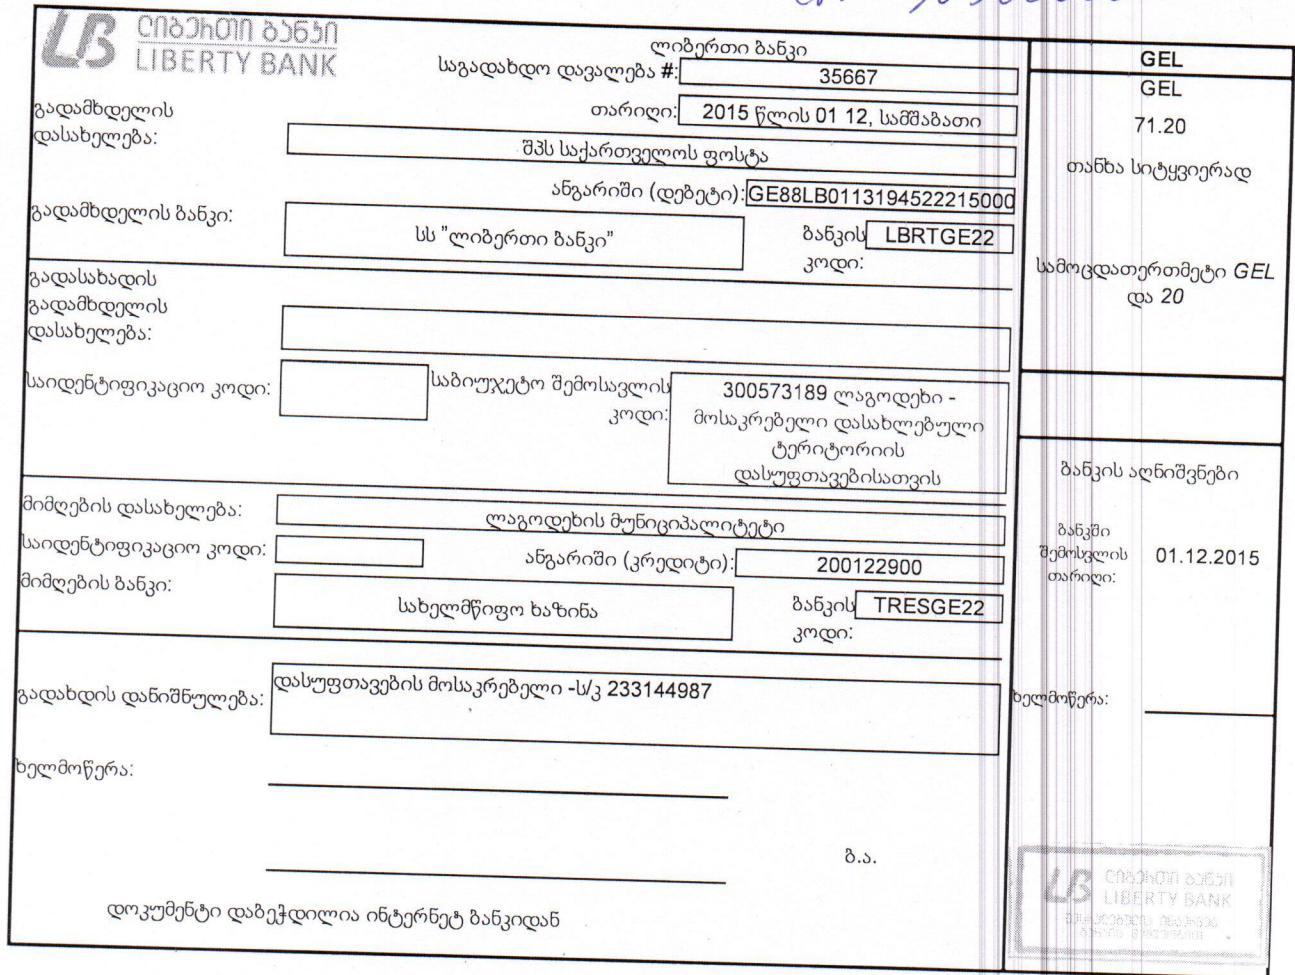 ლიბერთი ბანკი
LIBERTY BANK
ლიბერთი ბანკი
საგადახდო დავალება #: 35667
თარიღი: 2015 წლის 01 12, სამშაბათი
გადამხდელის
დასახელება:
შპს საქართველოს ფოსტა
ანგარიში (დებეტი): GE88LB0113194522215000
გადამხდელის ბანკი:
სს "ლიბერთი ბანკი"
ბანკის LBRTGE22
კოდი:
გადასახადის
გადამხდელის
დასახელება:
საიდენტიფიკაციო კოდი:
საბიუჯეტო შემოსავლის
კოდი:
300573189 ლაგოდეხი -
მოსაკრებელი დასახლებული
ტერიტორიის
დასუფთავებისათვის
მიმღების დასახელება: ლაგოდეხის მუნიციპალიტეტი
საიდენტიფიკაციო კოდი:
ანგარიში (კრედიტი): 200122900
მიმღების ბანკი:
სახელმწიფო ხაზინა
ბანკის TRESGE22
კოდი:
გადახდის დანიშნულება: დასუფთავების მოსაკრებელი -ს/კ 233144987
ხელმოწერა:
ბ.ა.
დოკუმენტი დაბეჭდილია ინტერნეტ ბანკიდან
GEL
GEL
71.20
თანხა სიტყვიერად
სამოცდათერთმეტი GEL
და 20
ბანკის აღნიშვნები
ბანკში
შემოსვლის
თარიღი:
01.12.2015
ხელმოწერა:
ლიბერთი ბანკი
LIBERTY BANK